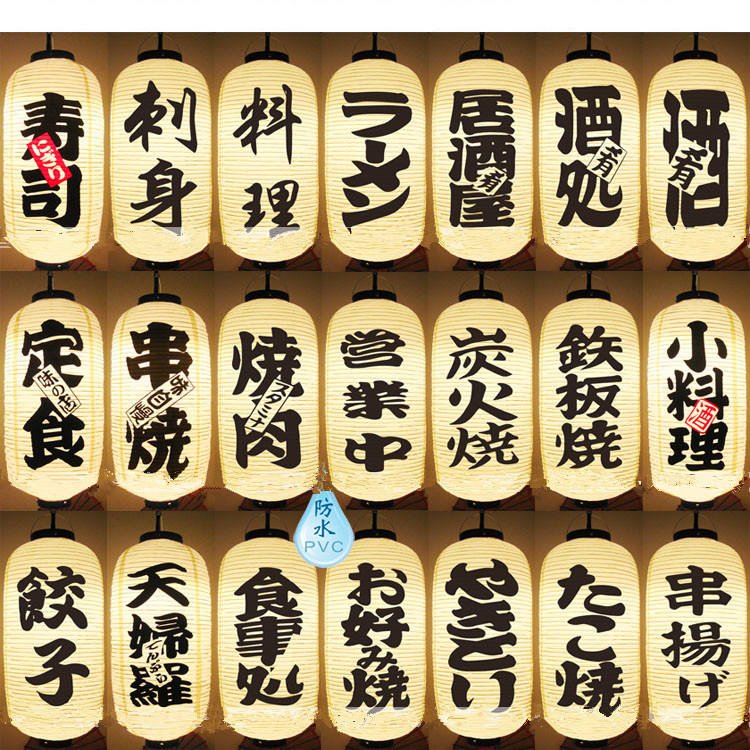 寿司
にぎり
刺身
料理
ラーメン
居酒屋
肴
酒処
肴
酒
肴
定食
味の街
串焼
味自慢
焼肉
スタミナ
営業中
炭火焼
鉄板焼
小料理
酒
防水
PVC
餃子
天婦羅
てんぷら
食事処
お好み焼
やきとり
たこ焼
串揚げ